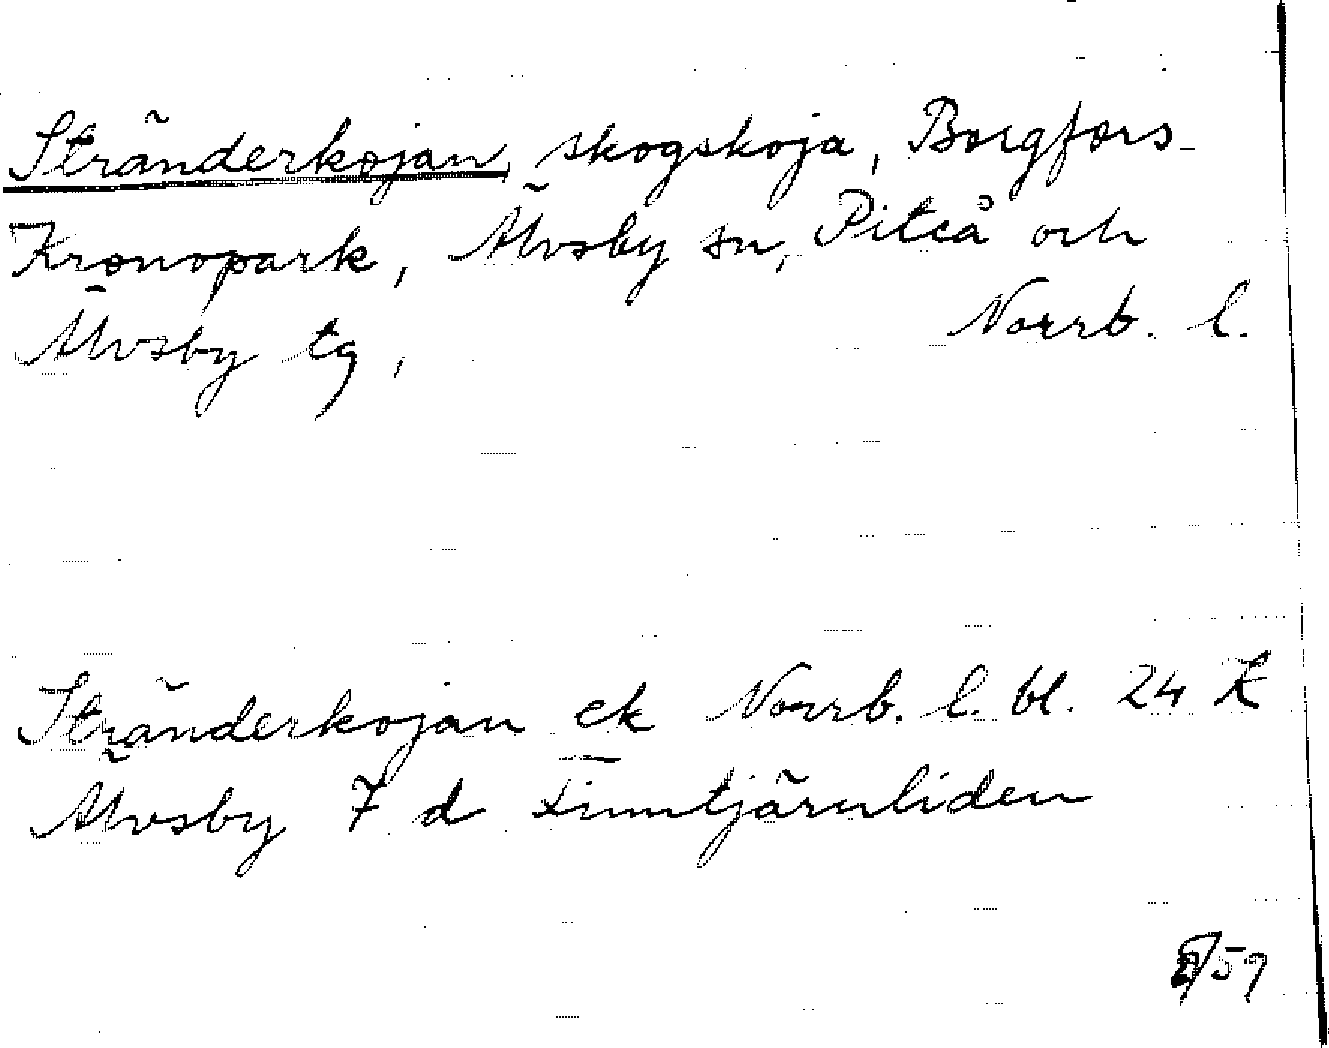 Stränderkojan, skogskoja, Borgfors-
Kronopark, Älvsby sn, Piteå och
Älvsby tg, Norrb. l.
Stränderkojan ek Norrb. l. bl. 24 K
Älvsby 7 d Finntjärnliden
/59